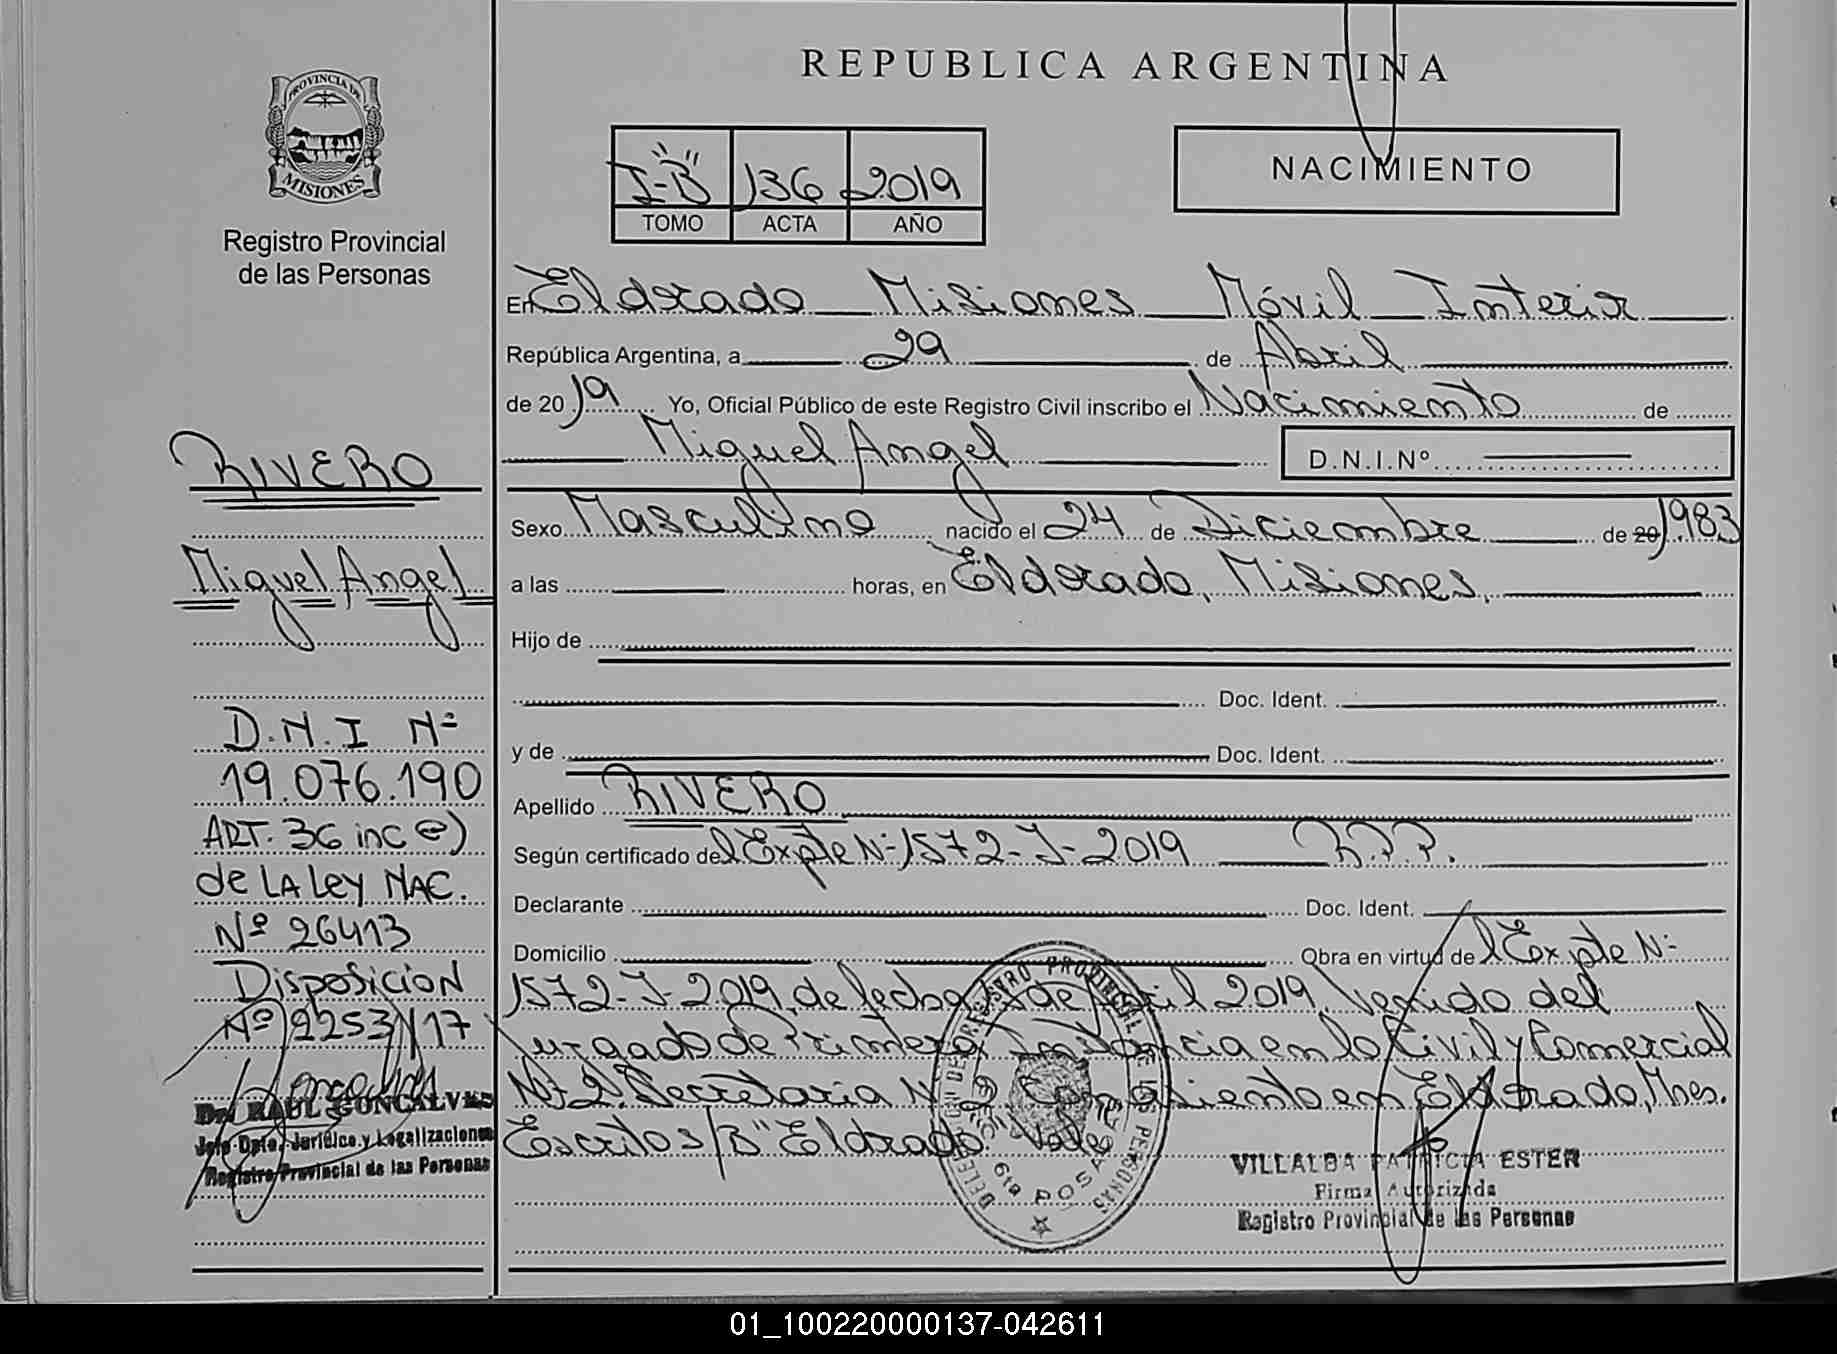 REPUBLICA ARGENTINA
PROVINCIA DE
MISIONES
Registro Provincial
de las Personas
I-"B" 136 2019
TOMO ACTA AÑO
NACIMIENTO
En Eldorado Misiones Móvil Interior
República Argentina, a 29 de Abril
de 2019 Yo, Oficial Público de este Registro Civil inscribo el Nacimiento de
Miguel Angel D.N.I.Nº
Sexo Masculino nacido el 24 de Diciembre de 20 1983
a las horas, en Eldorado, Misiones,
Hijo de
Doc. Ident.
y de Doc. Ident.
Apellido RIVERO
Según certificado del Expte Nº 1572-J-2019 R.P.P.
Declarante Doc. Ident.
Domicilio Obra en virtud del Expte Nº
1572-J-2019, de fecha de Abril 2019, Venido del
Juzgado de Primera Instancia en lo Civil y Comercial
Nº 2, Secretaria Nº con asiento en Eldorado, Mnes.
Escritos/B" Eldorado" Vale
RIVERO
Miguel Angel
D.N.I Nº
19.076.190
ART. 36 inc e)
de LA Ley NAC.
Nº 26413
Disposición
Nº 2253/17
Dr. RAUL GONCALVES
Jefe Dpto. Jurídico y Legalizaciones
Registro Provincial de las Personas
REGISTRO PROVINCIAL DE LAS PERSONAS
POSADAS
VILLALBA PATRICIA ESTER
Firma Autorizada
Registro Provincial de las Personas
01_100220000137-042611